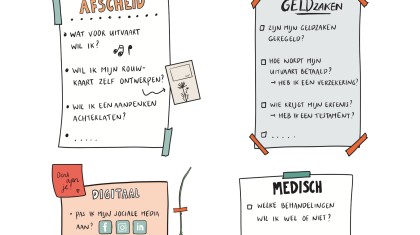 AFSCHEID
• WAT VOOR UITVAART
WIL IK?
• WIL IK MIJN ROUW-
KAART ZELF ONTWERPEN?
• WIL IK EEN AANDENKEN
ACHTERLATEN?
• .....
GELDZAKEN
ZIJN MIJN GELDZAKEN
GEREGELD?
HOE WORDT MIJN
UITVAART BETAALD?
→ HEB IK EEN VERZEKERING?
WIE KRIJGT MIJN ERFENIS?
→ HEB IK EEN TESTAMENT?
.....
DIGITAAL
• PAS IK MIJN SOCIALE MEDIA
AAN? f in
MEDISCH
WELKE BEHANDELINGEN
WIL IK WEL OF NIET?